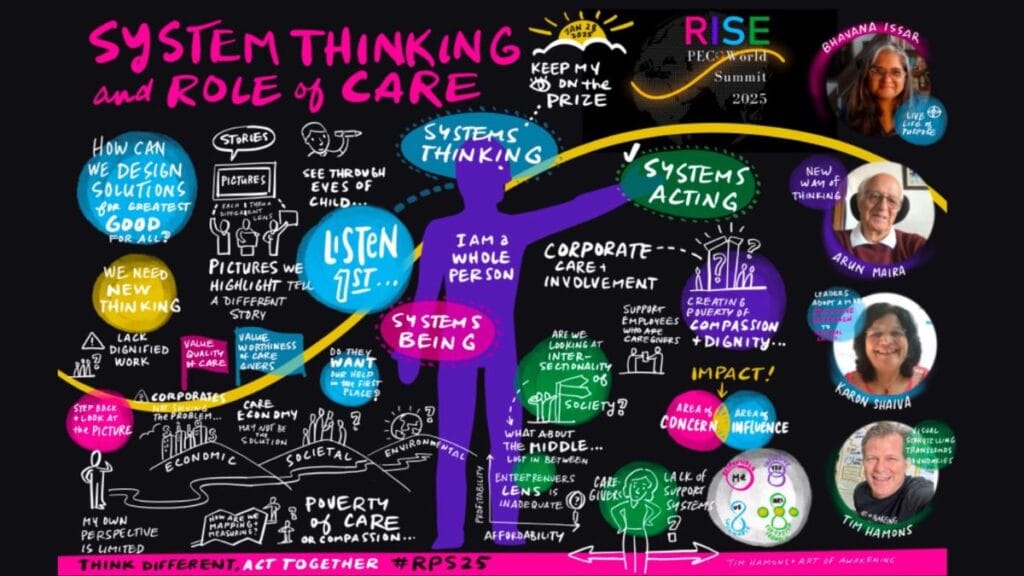 SYSTEM THINKING
and ROLE of CARE
JAN 28
2025
KEEP MY
ON THE
PRIZE
RISE
PECOWorld
Summit
2025
BHAVANA ISSAR
LIVE
LIFE of
PURPOSE
HOW CAN
WE DESIGN
SOLUTIONS
for GREATEST
GOOD
FOR ALL?
STORIES
PICTURES
EACH
DIFFERENT
LENS
PICTURES WE
HIGHLIGHT TELL
A DIFFERENT
STORY
SEE THROUGH
EYES OF
CHILD...
SYSTEMS
THINKING
SYSTEMS
ACTING
NEW
WAY of
THINKING
ARUN MAIRA
LISTEN
1ST...
I AM a
WHOLE
PERSON
CORPORATE
CARE +
INVOLVEMENT
CREATING
POVERTY of
COMPASSION
+ DIGNITY...
WE NEED
NEW
THINKING
SYSTEMS
BEING
SUPPORT
EMPLOYEES
WHO ARE
CAREGIVERS
LEADERS
ADOPT A
TO
KARON SHAIVA
LACK
DIGNIFIED
WORK
VALUE
QUALITY
of CARE
VALUE
WORTHINESS
OF CARE
GIVERS
DO THEY
WANT
OUR HELP
in the FIRST
PLACE?
ARE WE
LOOKING AT
INTER-
SECTIONALITY
OF
SOCIETY?
IMPACT!
AREA of
CONCERN
AREA of
INFLUENCE
STEP BACK
+ LOOK AT
the PICTURE
CORPORATES
NOT SOLVING
THE PROBLEM...
CARE
ECONOMY
MAY NOT BE
THE SOLUTION
ECONOMIC
SOCIETAL
ENVIRONMENTAL
WHAT ABOUT
THE MIDDLE...
LOST IN BETWEEN
ENTREPRENUERS
LENS is
INADEQUATE
PROFITABILITY
AFFORDABILITY
CARE-
GIVERS
LACK of
SUPPORT
SYSTEMS
ME
YOU
US
VISUAL
STORYTELLING
TRANSCENDS
BOUNDARIES
TIM HAMONS
MY OWN
PERSPECTIVE
IS LIMITED
HOW ARE WE
MAPPING +
MEASURING?
POVERTY
of CARE
or COMPASSION...
THINK DIFFERENT, ACT TOGETHER #RPS25
TIM HAMONS • ART OF AWAKENING